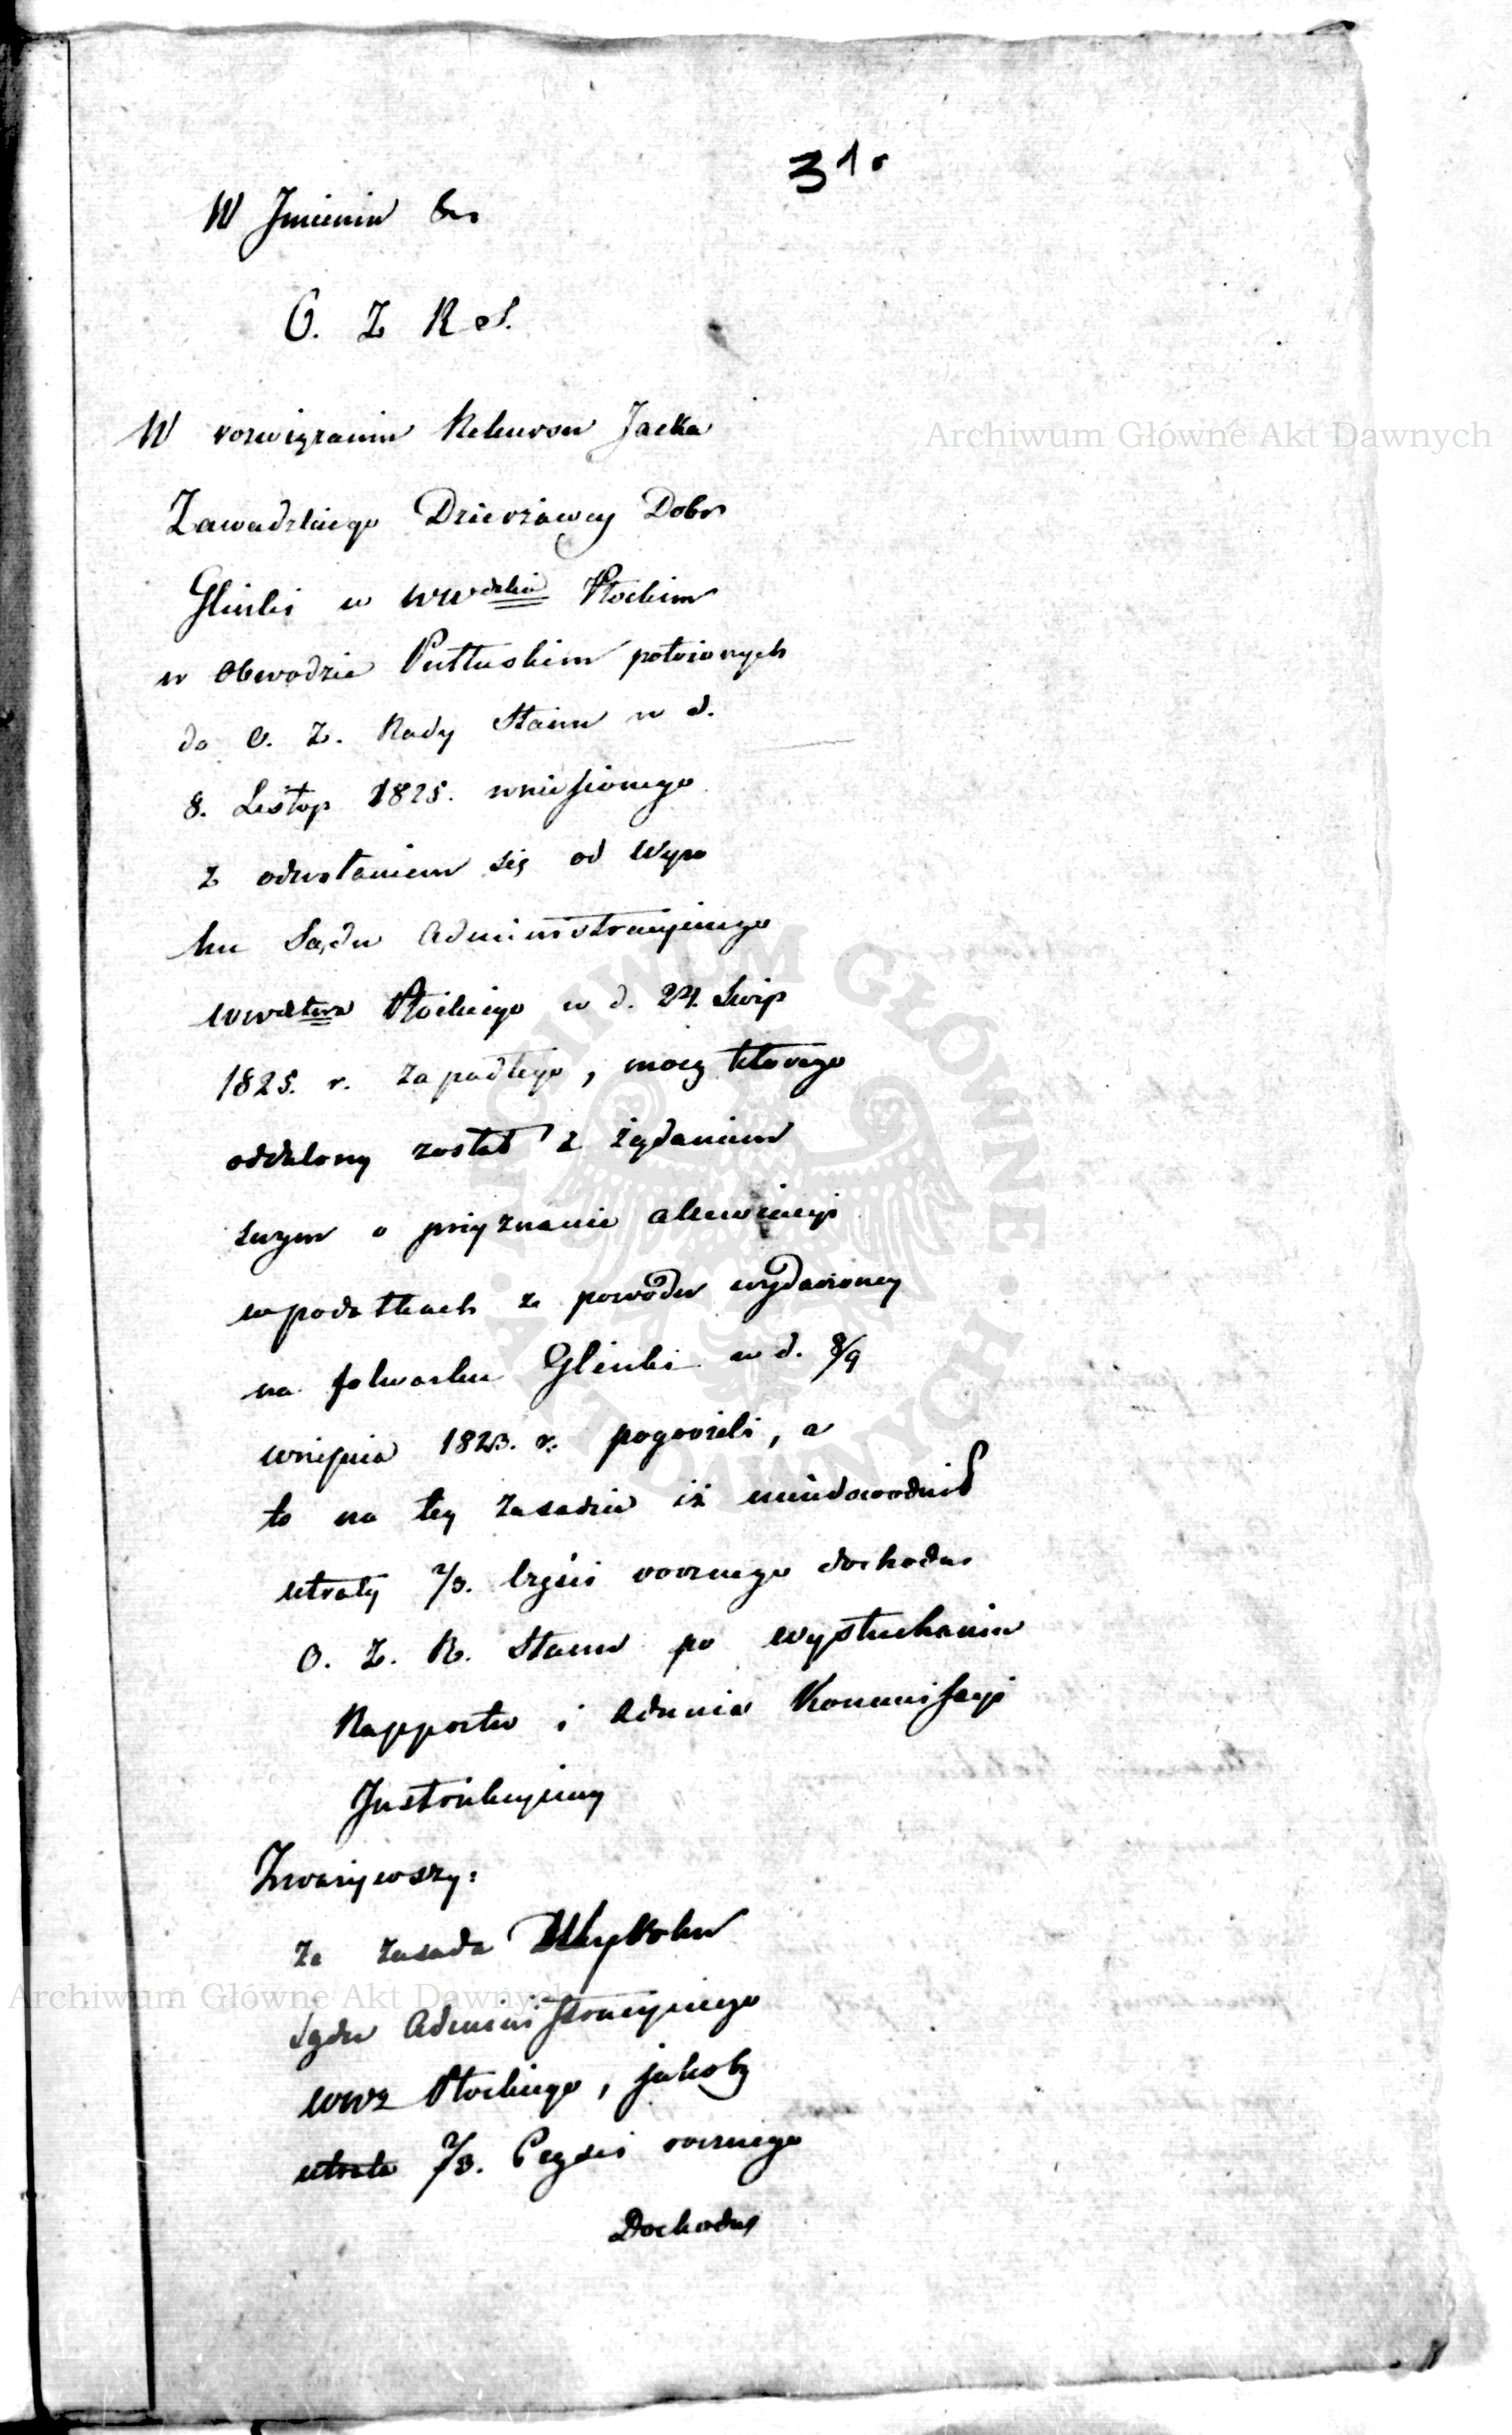 31.
W Jmieniu &c
O. Z R S.
W rozwiązaniu Rekursu Jacka
Zawadzkiego Dzierżawcy Dobr
Glinki w wwdztwie Płockim
w Obwodzie Pułtuskim położonych
do O. Z. Rady Stanu w d.
8. Listop 1825. wniesionego
z odwołaniem się od Wyro
ku Sądu Administracyinego
wwdztwa Płockiego w d. 24. Sierp
1825. r. zapadłego, mocą którego
oddalony został z żądaniem
swym o przyznanie allewiacyi
w podatkach z powodu wydarzoney
na folwarku Glinki w d. 8/9
września 1823. r. pogorzeli, a
to na tey zasadzie iż nieudowodnił
utraty 2/3. części rocznego dochodu
O. Z. R. Stanu po wysłuchaniu
Rapportu i zdania Kommissyi
Jnstrukcyiney
Zważywszy:
Ze zasada Wyroku
Sądu Administracyinego
wwa Płockiego, jakoby
utrata 2/3. Części rocznego
Dochodu
Archiwum Główne Akt Dawnych
Archiwum Główne Akt Dawnych
ARCHIWUM GŁÓWNE · AKT DAWNYCH ·